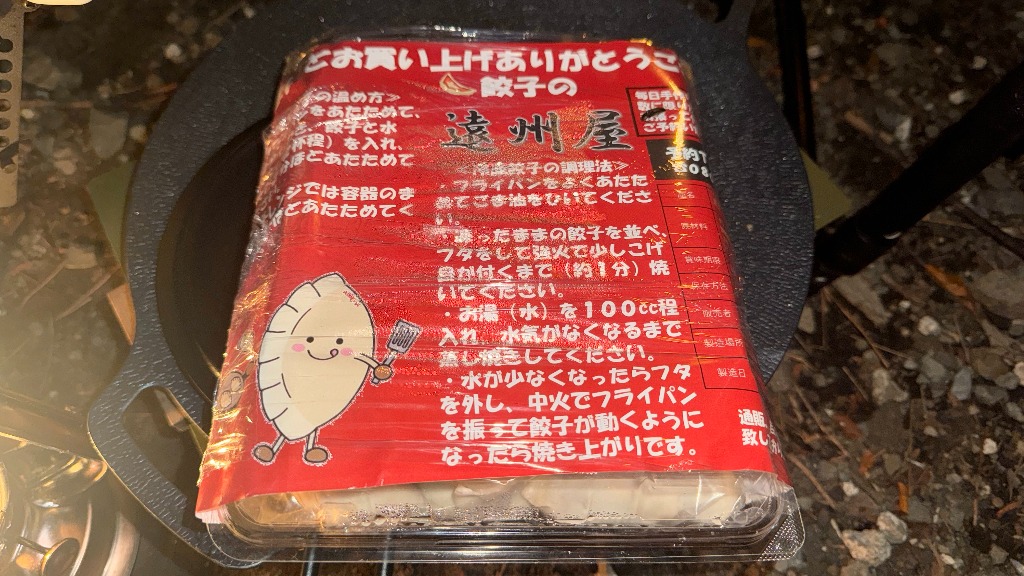 とお買い上げありがとうご
餃子の
遠州屋
の温め方>
をあたためて、
餃子と水
杯程）を入れ、
ほどあたためて
ジでは容器のま
どあたためてく
餃子の調理法>
・フライパンをよくあたた
めてごま油をひいてくださ
い。
ったままの餃子を並べ、
フタをして強火で少しこげ
目が付くまで（約1分）焼
いてください。
・お湯（水）を100cc程
入れ、水気がなくなるまで
蒸し焼きしてください。
・水が少なくなったらフタ
を外し、中火でフライパン
を振って餃子が動くように
なったら焼き上がりです。
毎日
数に限
原材料
賞味期限
保存方法
販売者
製造場所
製造日
通販
致し